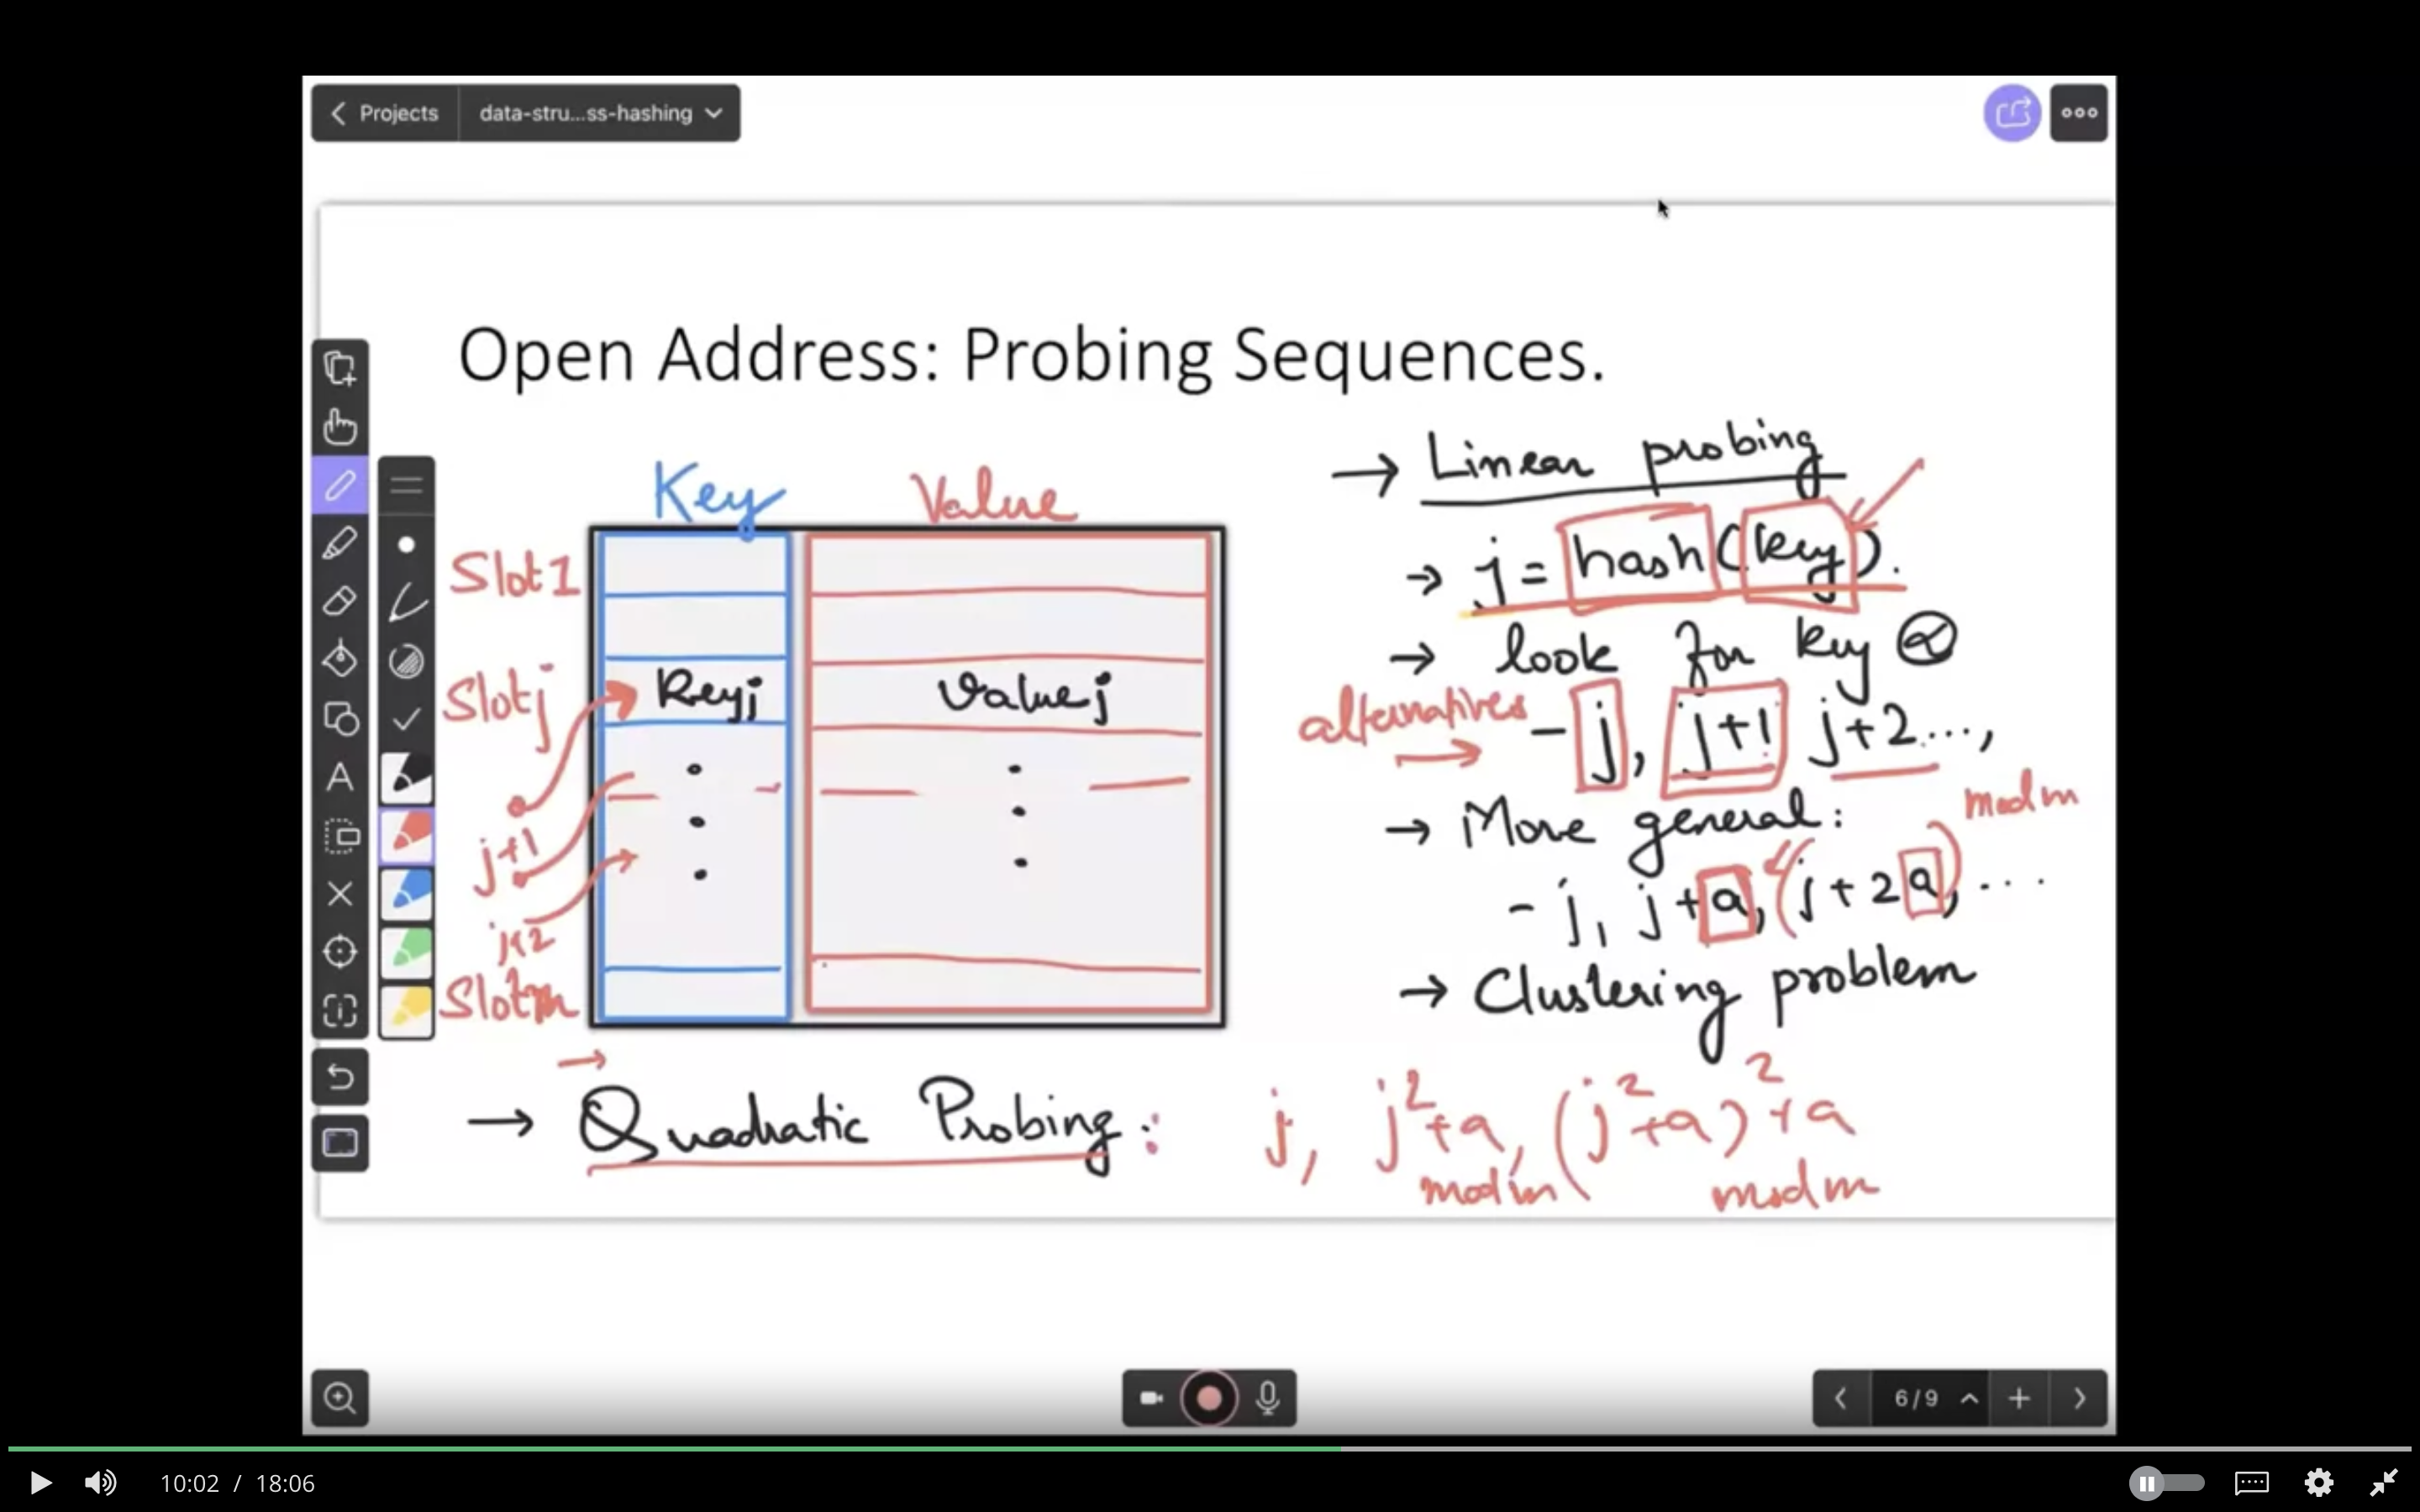 Projects data-stru...ss-hashing
Open Address: Probing Sequences.
Key Value
Slot 1
Slot j Key j Value j
j+1
j+2
Slot m
→ Linear probing
→ j = hash(key).
→ look for key @
alternatives → - j, j+1 j+2...,
→ More general: mod m
- j, j+a, (j+2a), ...
→ Clustering problem
→ Quadratic Probing: j, j²+a, (j²+a)²+a
mod m mod m
6/9
10:02 / 18:06